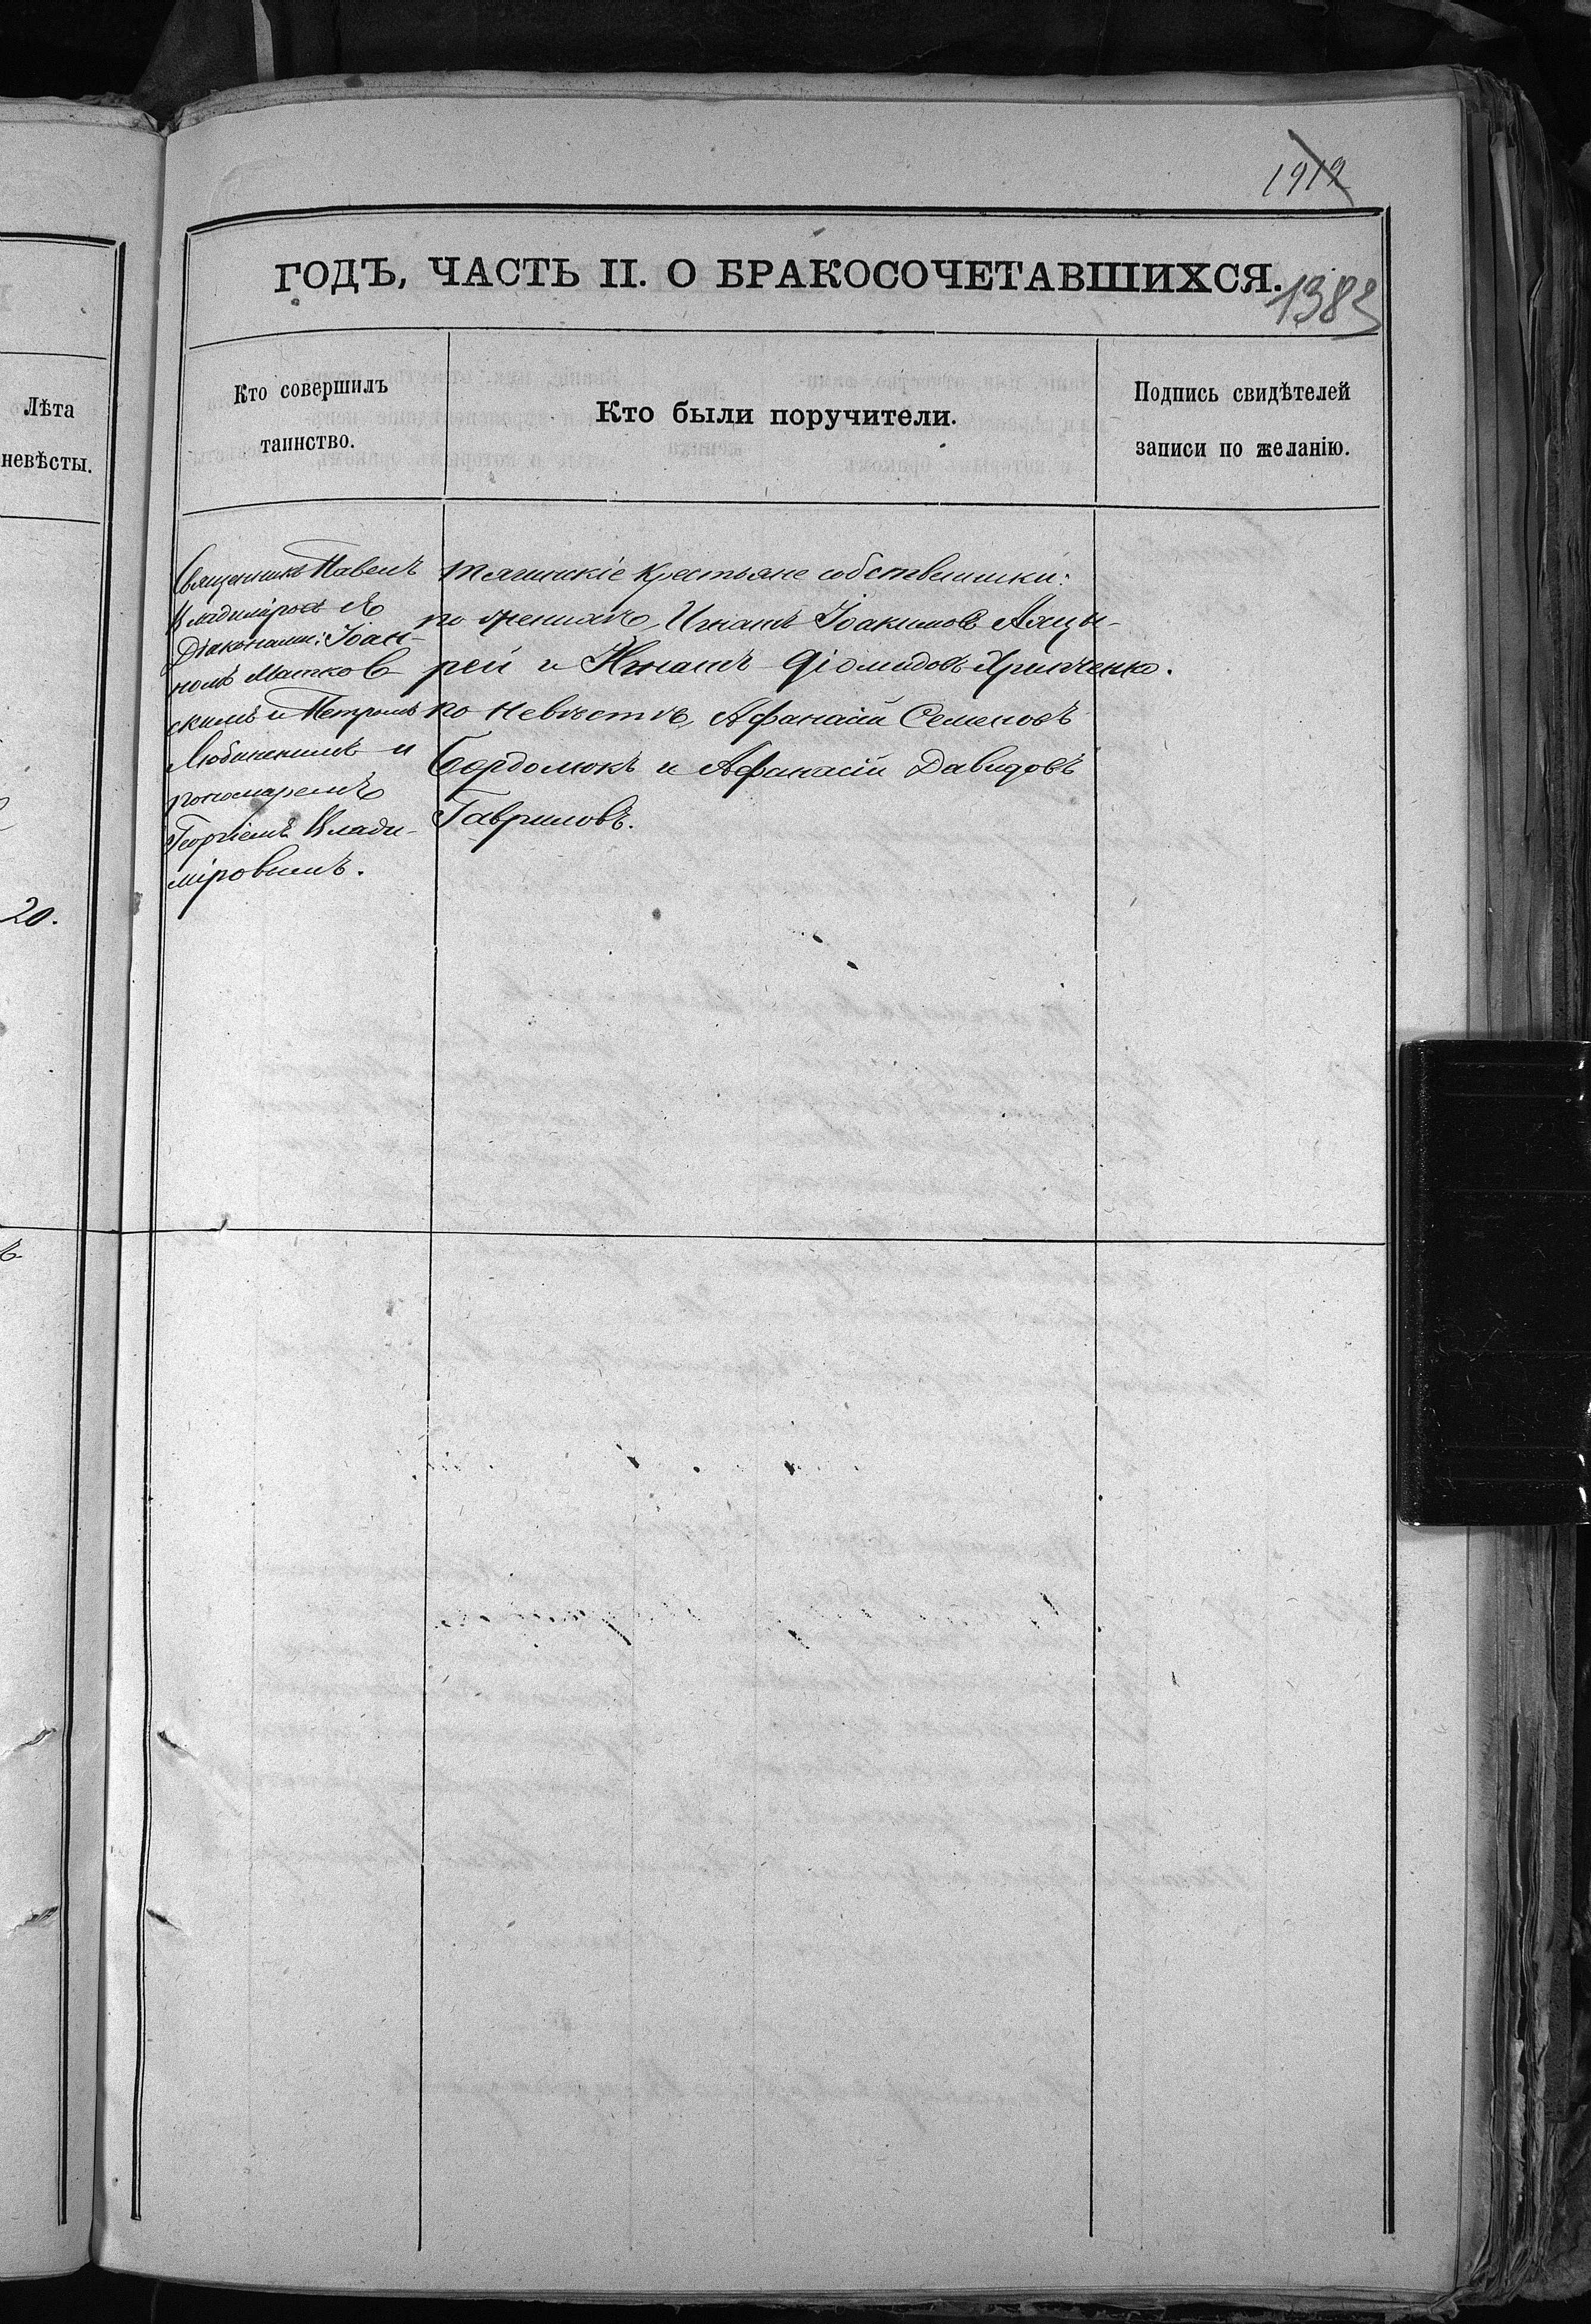 1912
ГОДЪ, ЧАСТЬ II. О БРАКОСОЧЕТАВШИХСЯ.
1383
Лѣта
невѣсты.
20.
Кто совершилъ
таинство.
Кто были поручители.
Подпись свидѣтелей
записи по желанію.
Священникъ Павелъ
Владиміровъ съ
Діаконами: Іоан-
номъ Матков
скимъ и Петромъ
и
пономаремъ
Георгіемъ Влади-
міровымъ.
Тягинскіе крестьяне собственники:
по женихѣ, Игнатъ Іоакимовъ Ляцы-
рей и Игнатъ Діомидовъ Христенко.
по невѣстѣ, Афанасій Семеновъ
Бордомокъ и Афанасій Давидовъ
Гавриловъ.